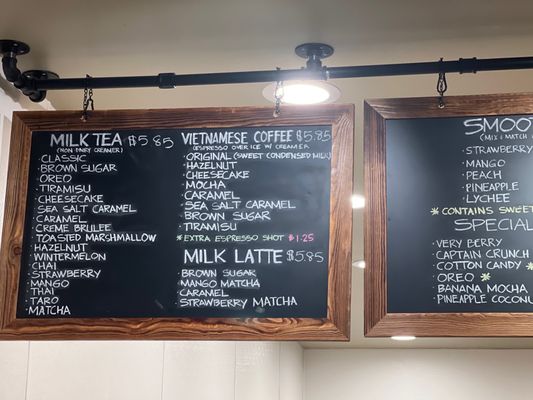 MILK TEA $5.85
(NON DAIRY CREAMER)
· CLASSIC
· BROWN SUGAR
· OREO
· TIRAMISU
· CHEESECAKE
· SEA SALT CARAMEL
· CARAMEL
· CREME BRULEE
· TOASTED MARSHMALLOW
· HAZELNUT
· WINTERMELON
· CHAI
· STRAWBERRY
· MANGO
· THAI
· TARO
· MATCHA
VIETNAMESE COFFEE $5.85
(ESPRESSO OVER ICE W/ CREAMER
· ORIGINAL (SWEET CONDENSED MILK)
· HAZELNUT
· CHEESECAKE
· MOCHA
· CARAMEL
· SEA SALT CARAMEL
· BROWN SUGAR
· TIRAMISU
* EXTRA ESPRESSO SHOT $1.25
MILK LATTE $5.85
· BROWN SUGAR
· MANGO MATCHA
· CARAMEL
· STRAWBERRY MATCHA
SMOO
(MIX & MATCH
· STRAWBERRY
· MANGO
· PEACH
· PINEAPPLE
· LYCHEE
* CONTAINS SWEET
SPECIAL
· VERY BERRY
· CAPTAIN CRUNCH
· COTTON CANDY *
· OREO *
· BANANA MOCHA
· PINEAPPLE COCONU